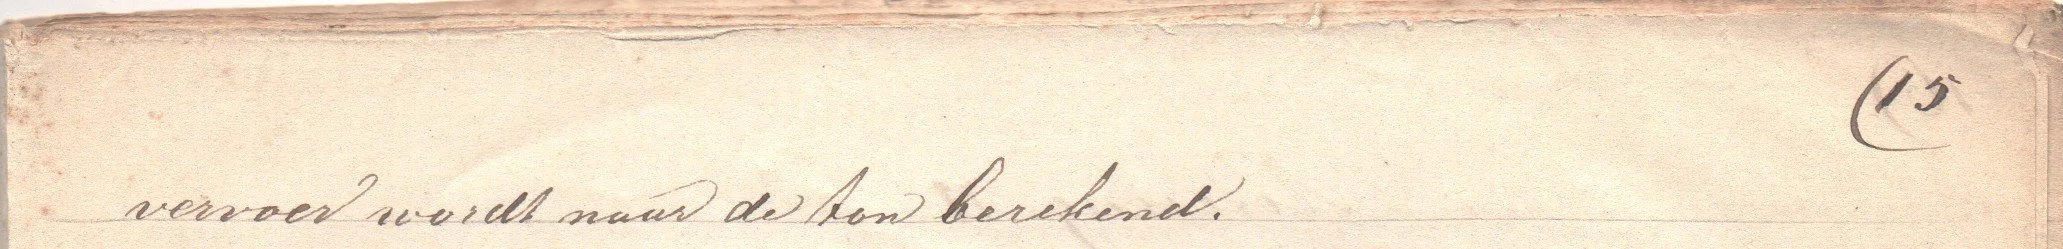 (15
vervoer wordt naar de ton berekend.